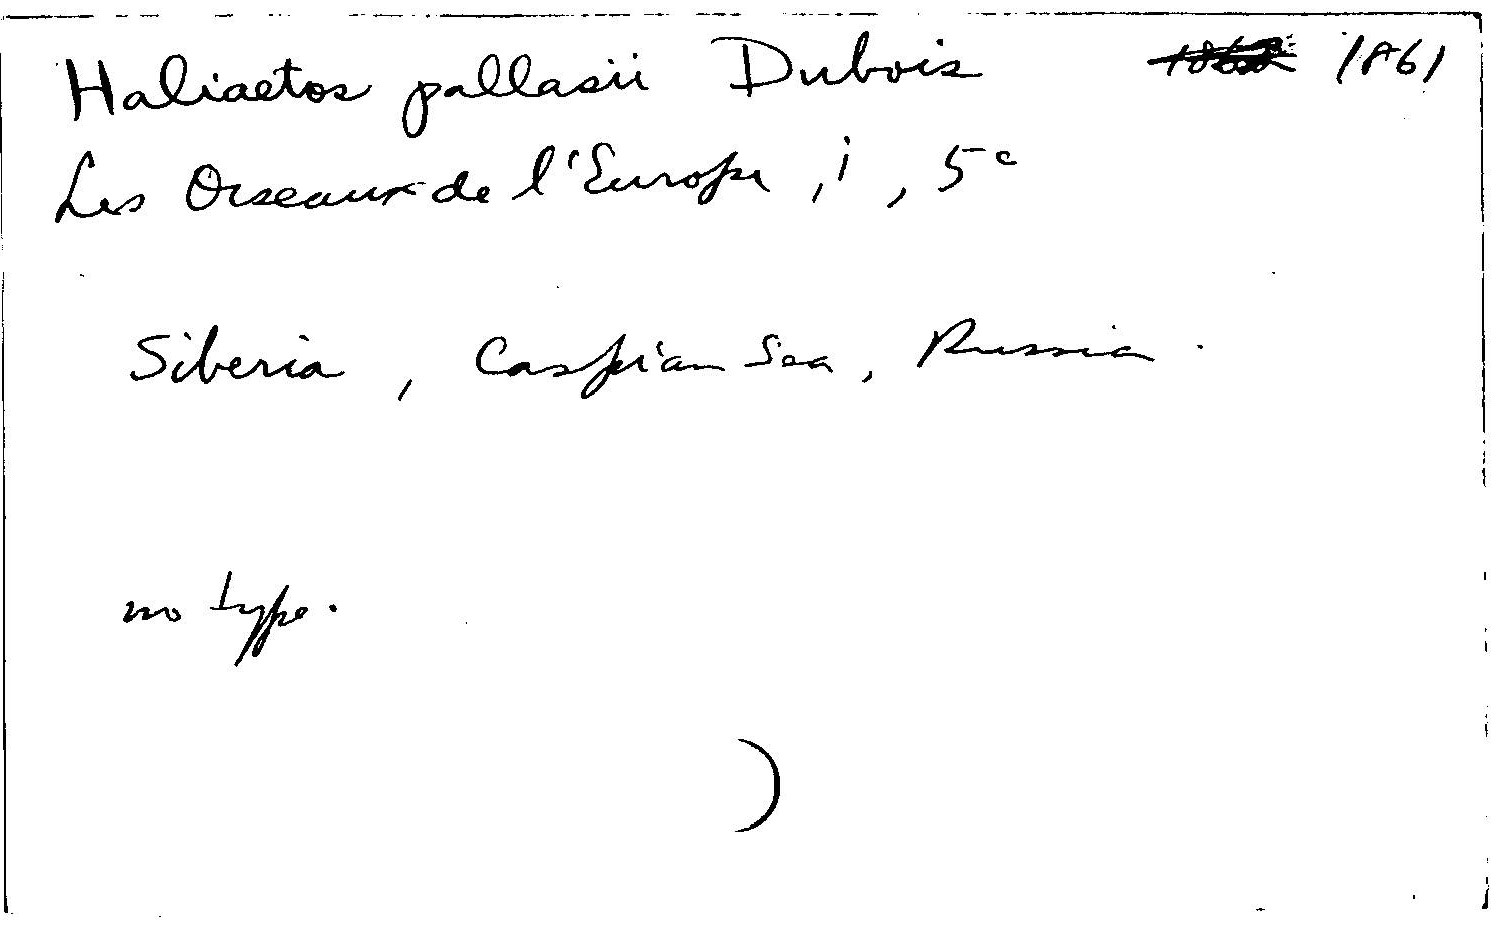 Haliaetos pallasii Dubois 1861
Les Oiseaux de l'Europe, i, 5c
Siberia, Caspian Sea, Russia.
no type.